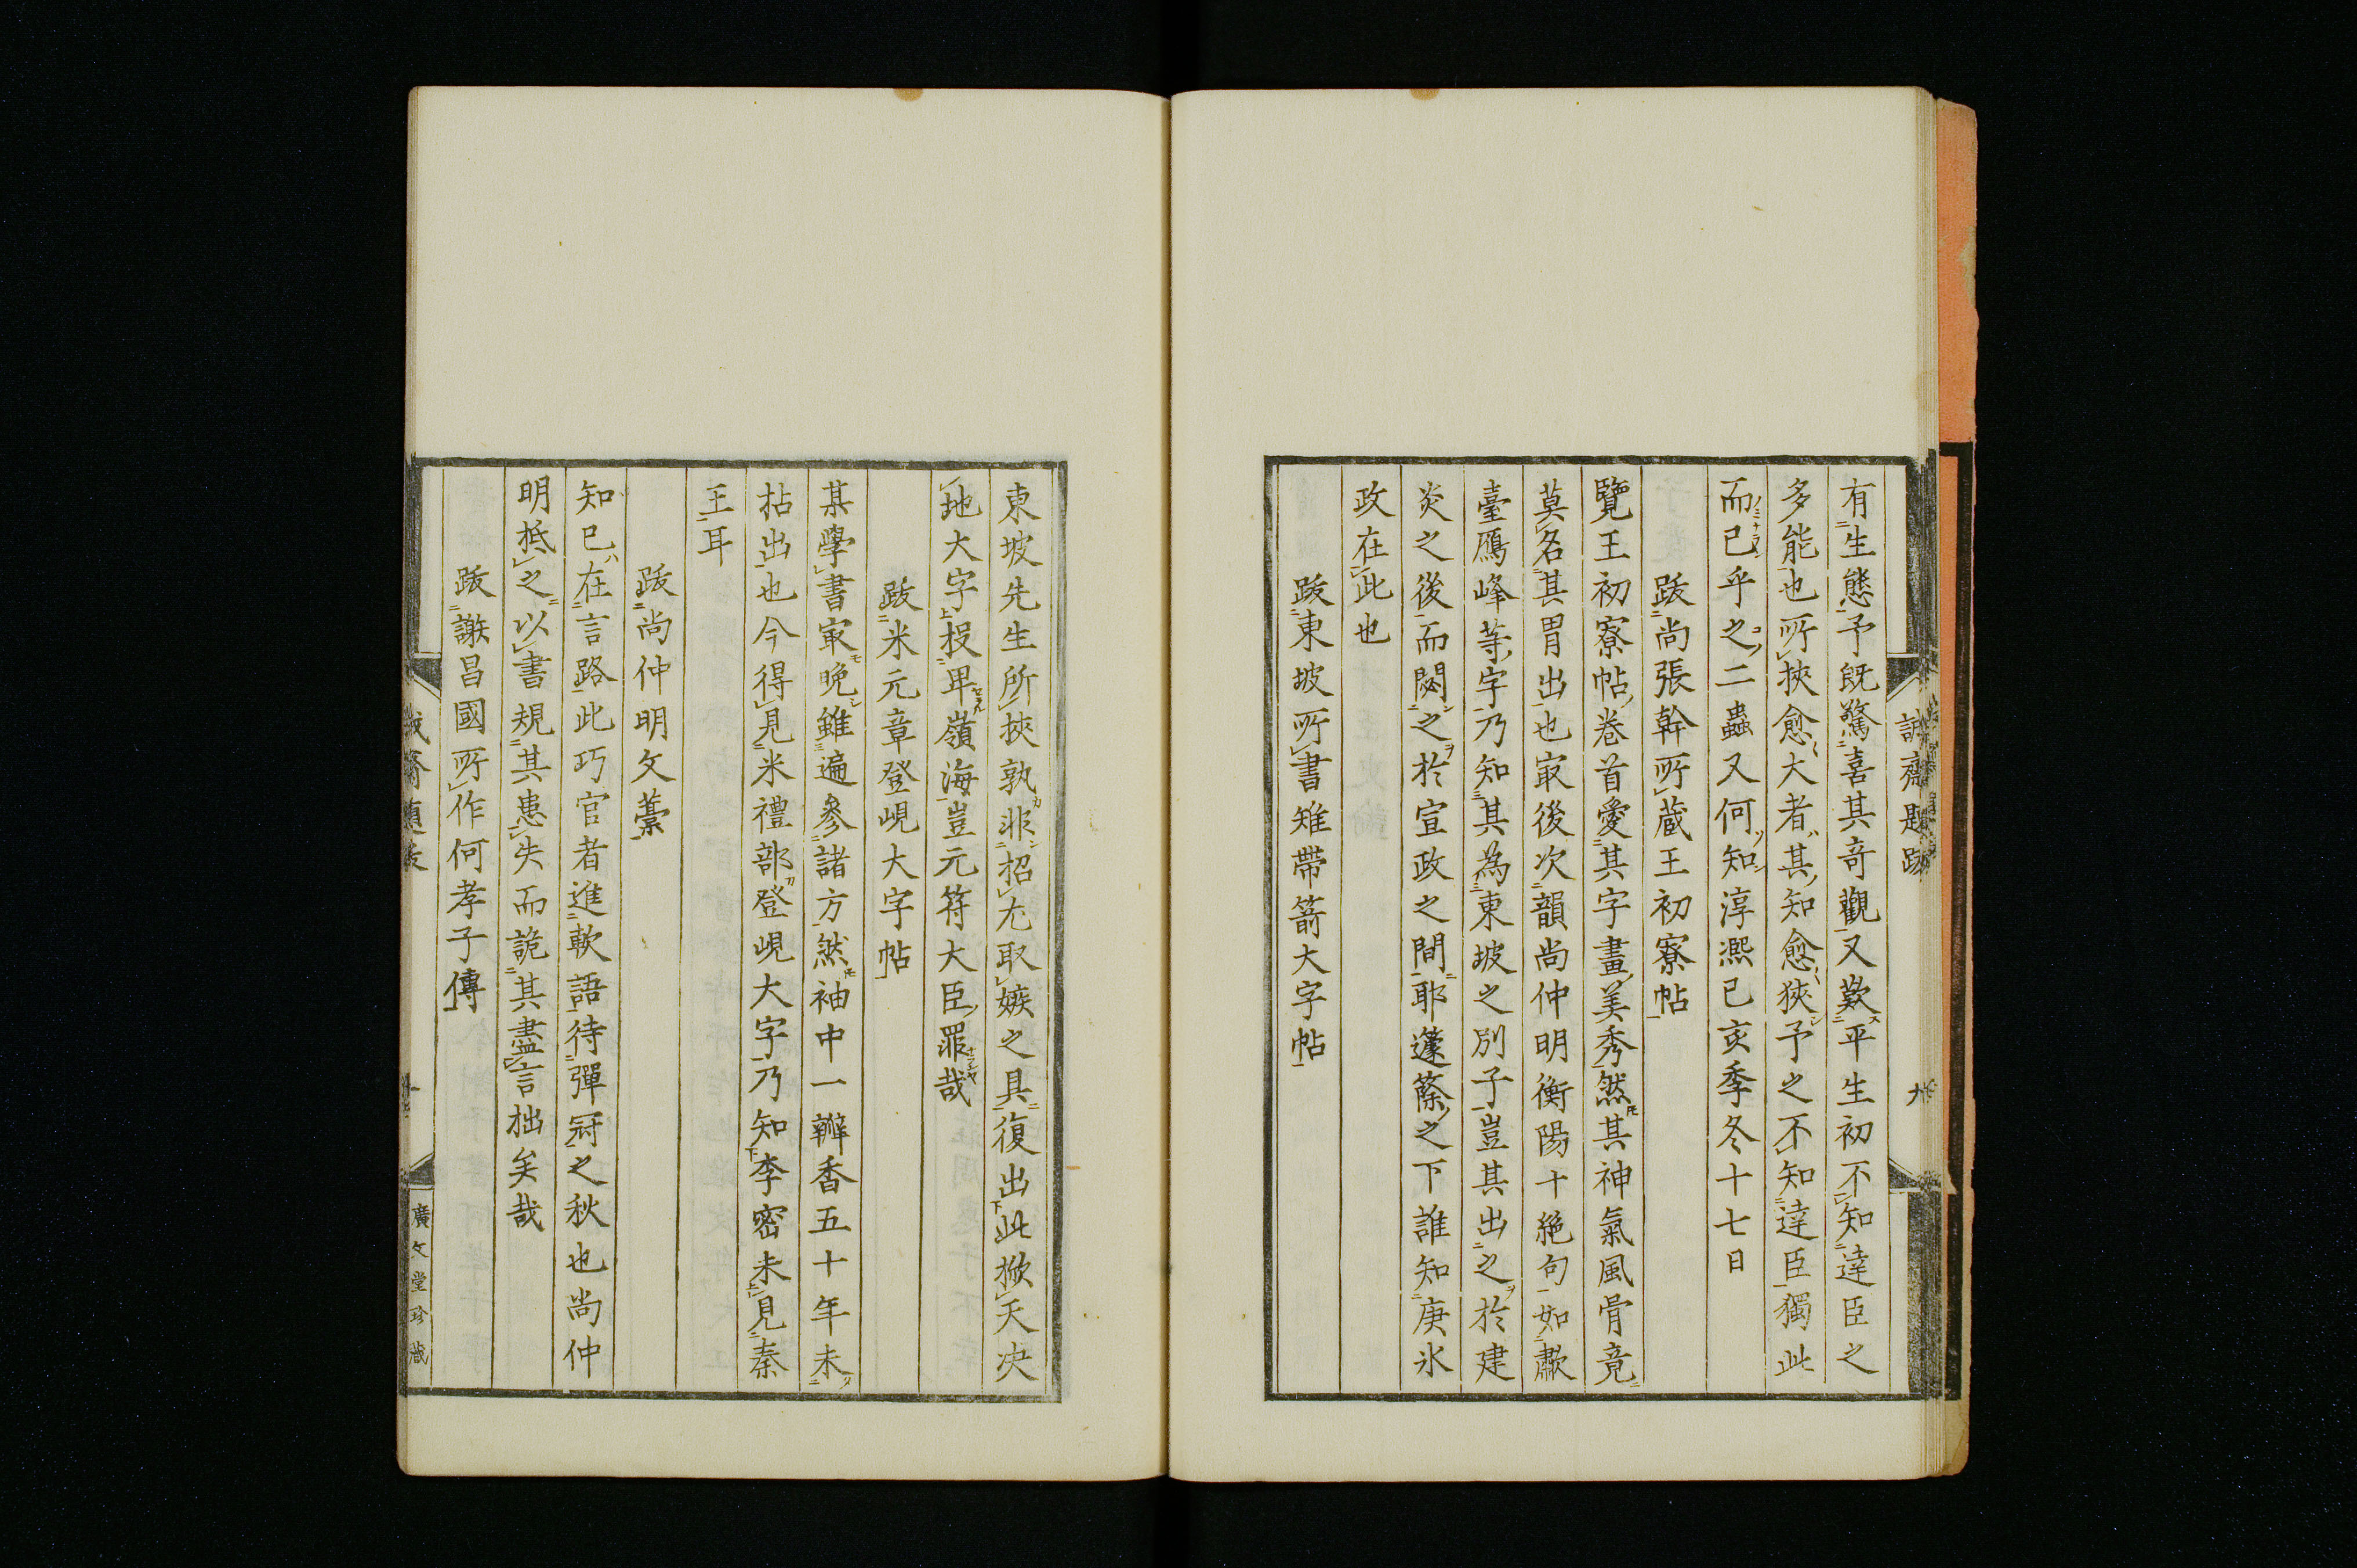 有生態予既驚喜其奇觀又歎平生初不知達臣之
多能也所挾愈大者其知愈狹予之不知達臣獨此
而已乎之二蟲又何知淳熙已亥季冬十七日
跋尚張幹所蔵王初寮帖
覽王初寮帖卷首愛其字畫美秀然其神氣風骨竟
莫名其胃出也㝡後次韻尚仲明衡陽十絶句如歗
臺鴈峰等字乃知其為東坡之別子豈其出之於建
炎之後而閟之於宣政之間耶蘧蒢之下誰知庚氷
政在此也
跋東坡所書雉帶箭大字帖
誠齋題跋
九
東坡先生所挾孰非招尤取嫉之具復出此掀天决
地大字投畀嶺海豈元符大臣罪哉
跋米元章登峴大字帖
某學書㝡晚雖遍參諸方然袖中一瓣香五十年未
拈出也今得見米禮部登峴大字乃知李密未見秦
王耳
跋尚仲明文藁
知已在言路此巧官者進軟語待彈冠之秋也尚仲
明抵之以書規其患失而詭其盡言拙矣哉
跋謝昌國所作何孝子傳
廣文堂珍蔵